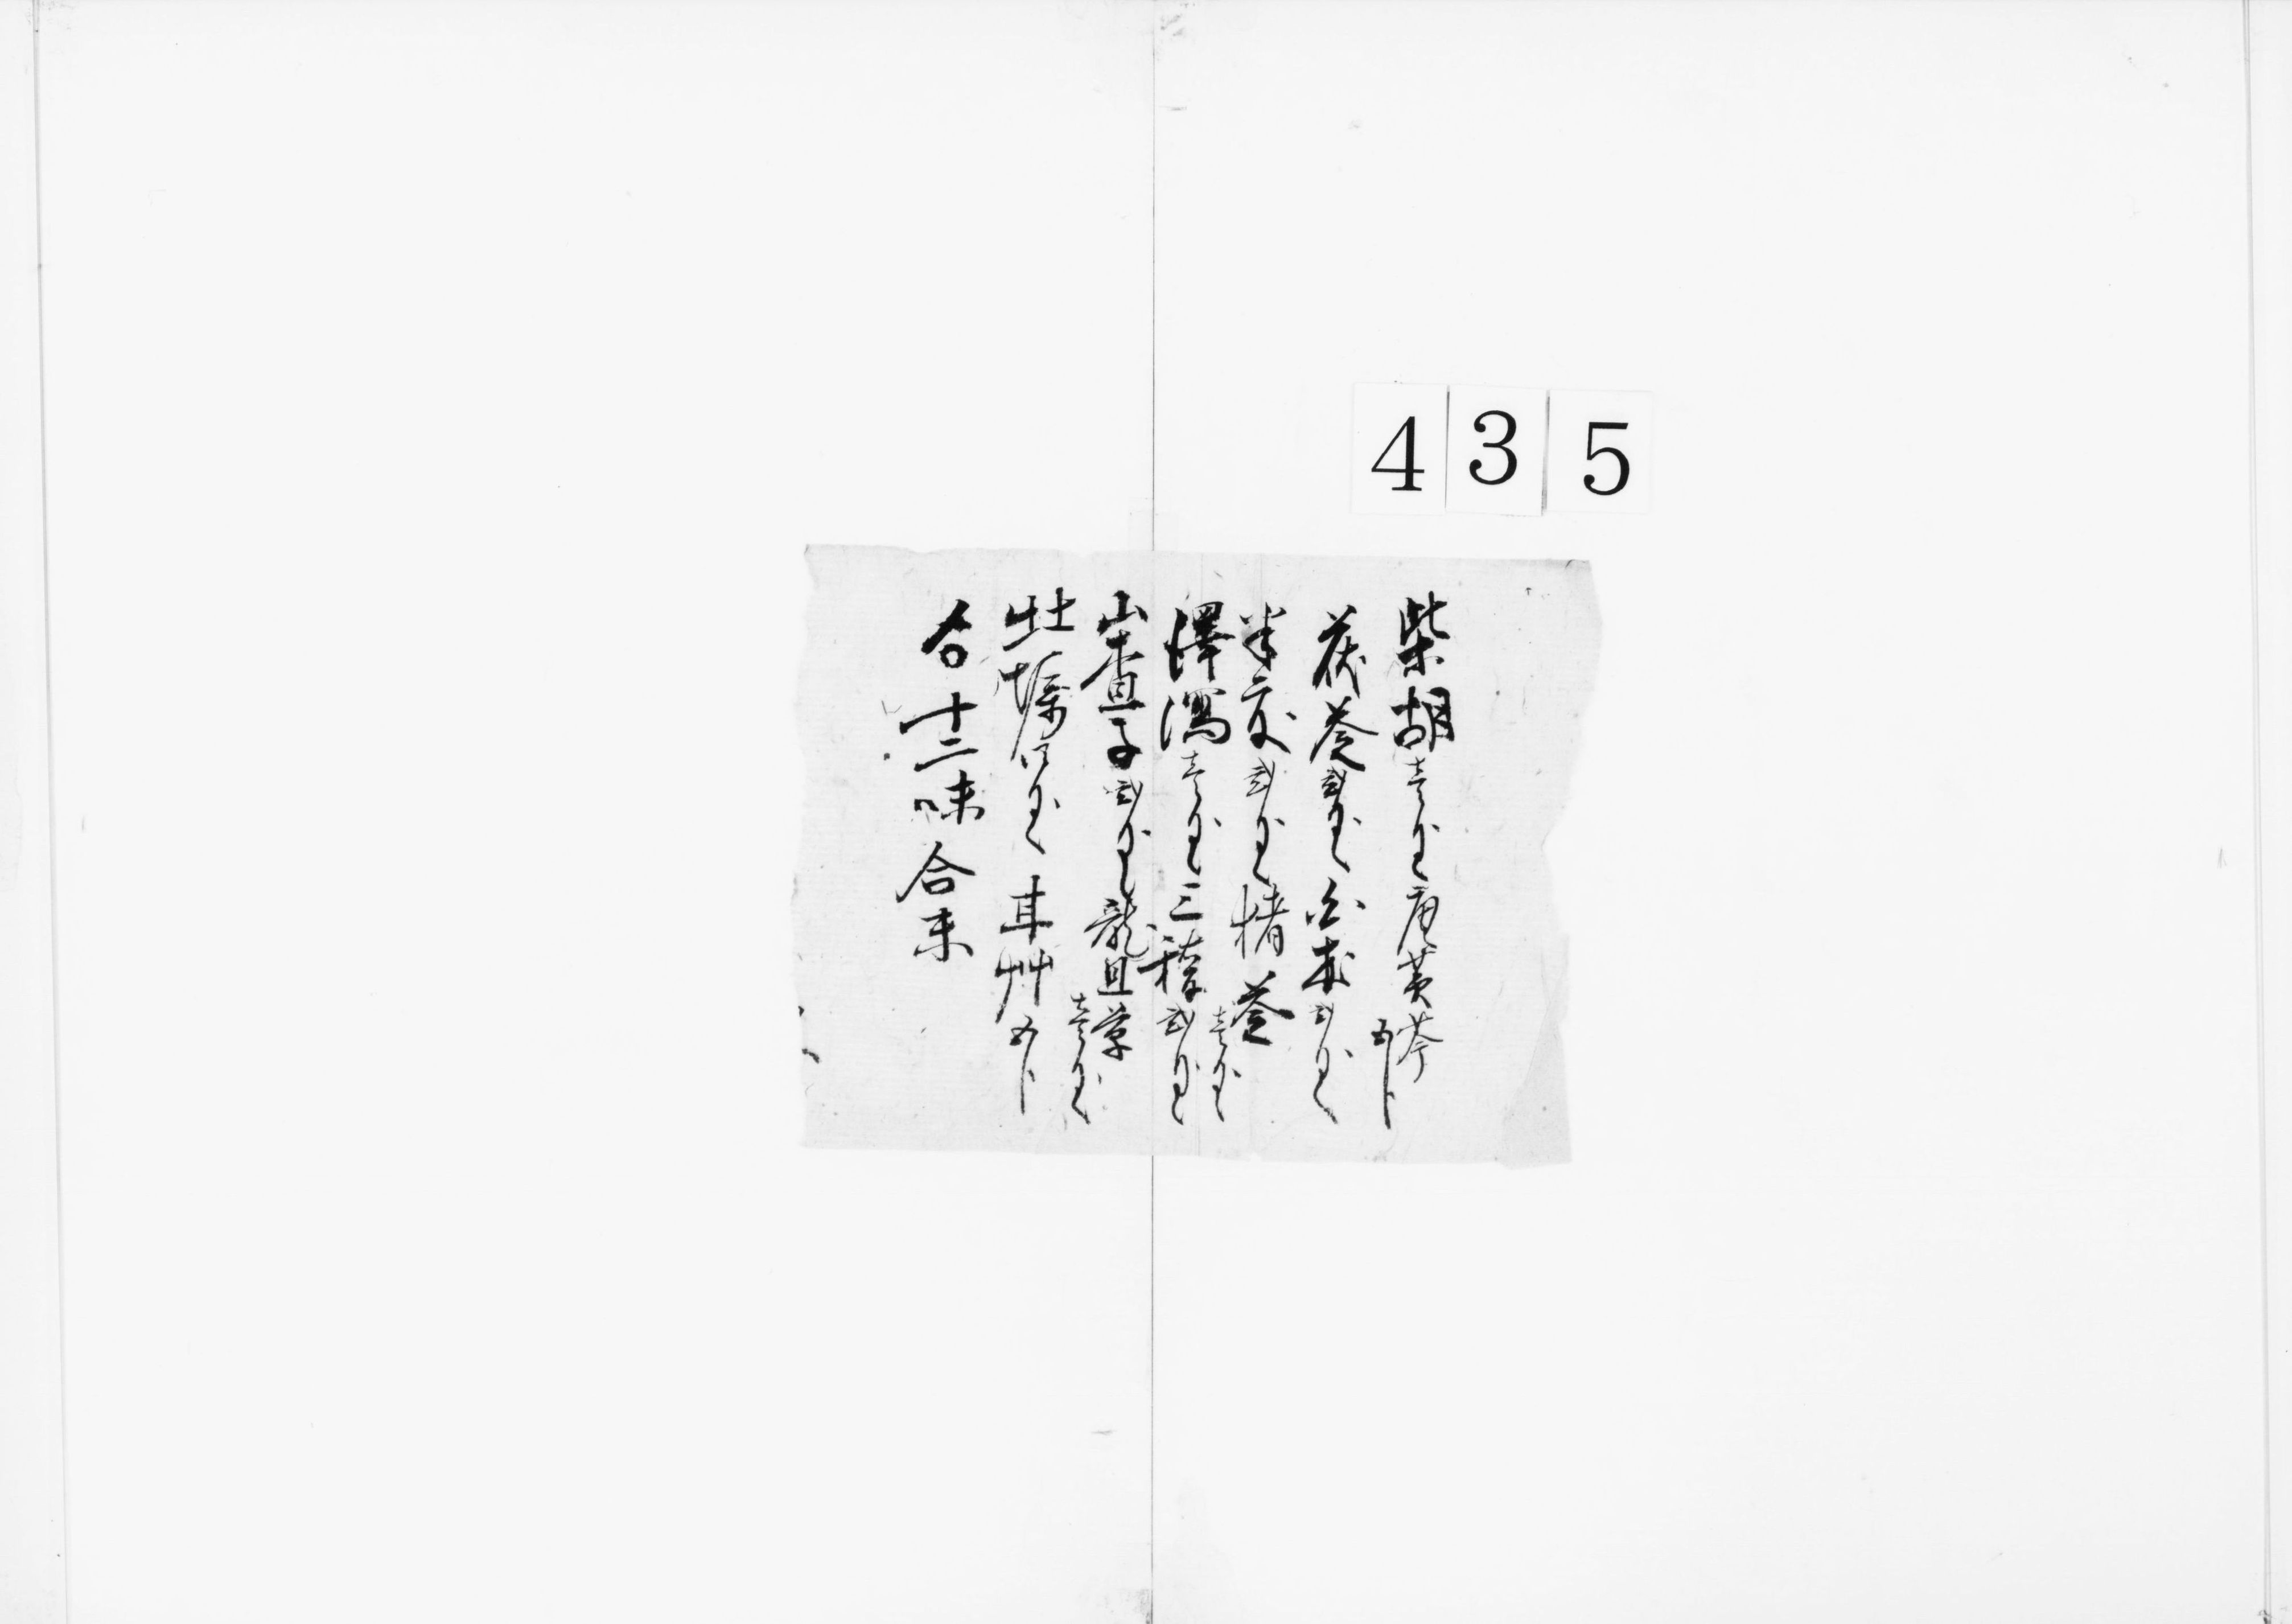 435
柴胡壱匁唐黄芩五分
茯苓弐匁白朮弐匁
半夏弐匁猪苓壱匁
澤瀉壱匁三稜弐匁
山査子弐匁龍且草壱匁
牡蛎四匁甘艸五分
右十二味合末